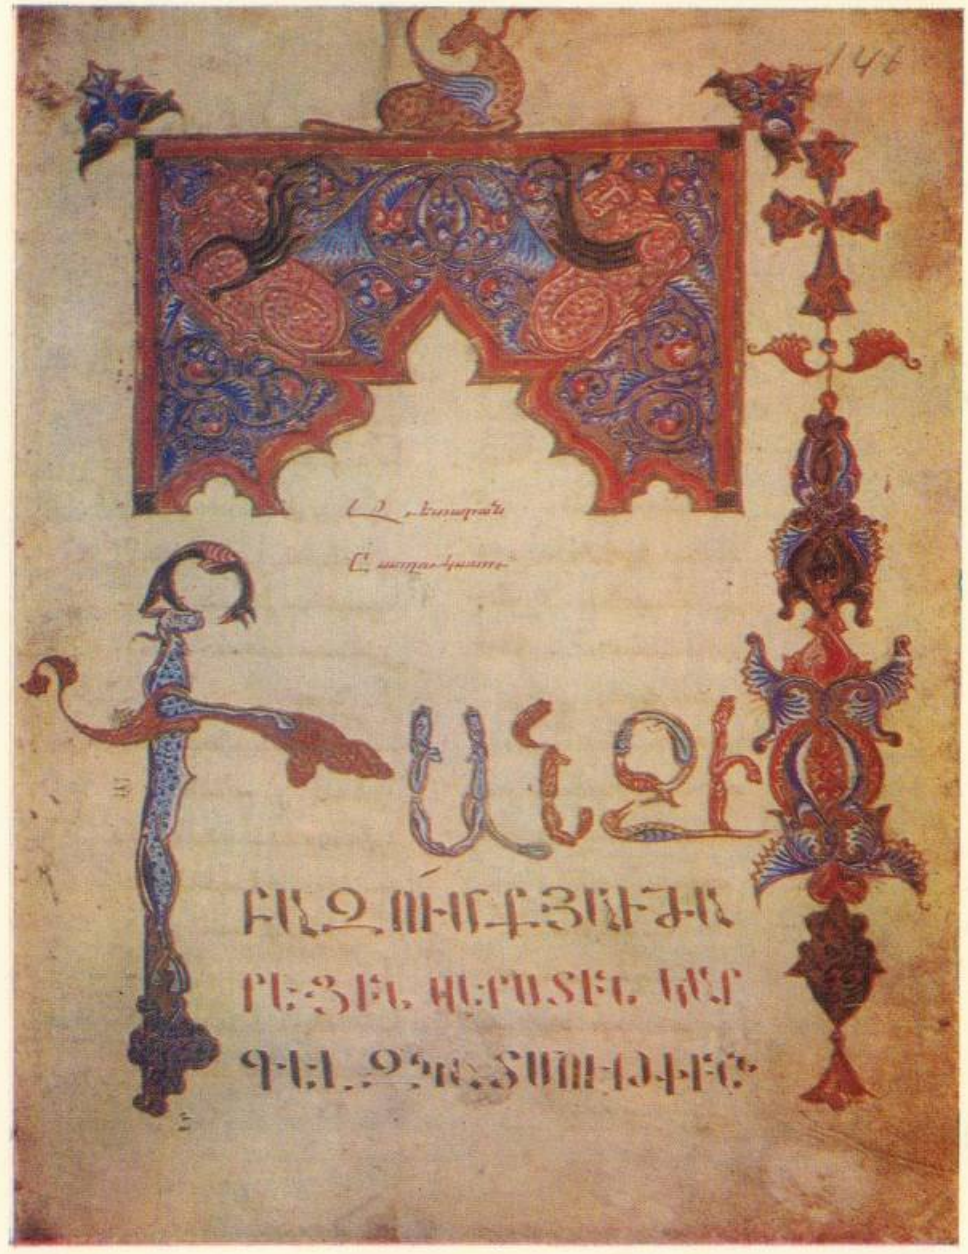 Աւետարան
Ըստ ղուկասու
ՔԱՆԶԻ
ԲԱԶՈՒՄՔ ՅԱՒԺԱ
ՐԵՑԻՆ ՎԵՐՍՏԻՆ ԿԱՐ
ԳԵԼ ԶՊԱՏՄՈՒԹԻՒՆ